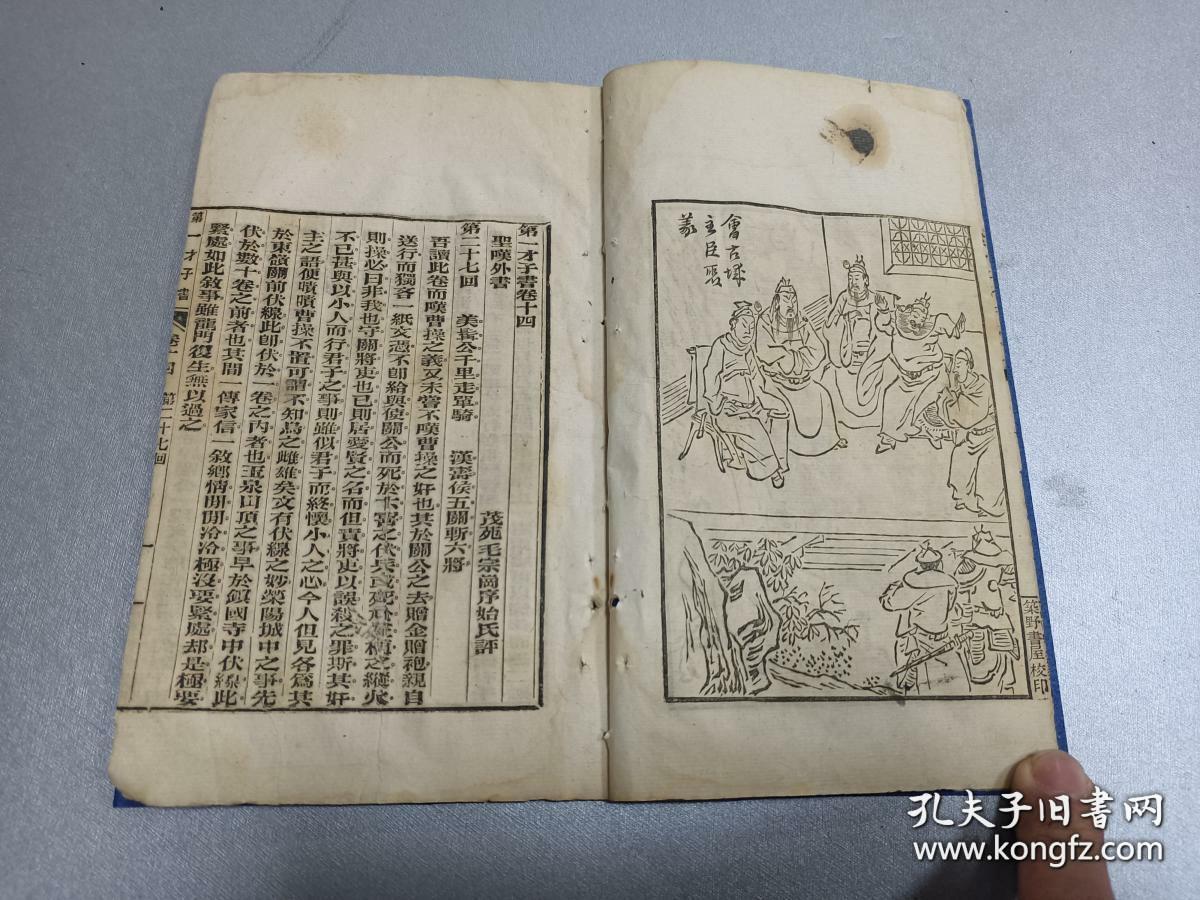 會古城
主臣聚
義
築野書屋校印
第一才子書卷十四
聖嘆外書
茂苑毛宗崗序始氏評
第二十七回 美髯公千里走單騎 漢壽侯五關斬六將
吾讀此卷而嘆曹操之義又未嘗不嘆曹操之奸也其於關公之去贈金贈袍親自
送行而獨吝一紙文憑不卽給與使關公而死於卞喜之伏兵或死於王植之縱火
則操必曰非我也守關將吏也已則居愛賢之名而但責將吏以誤殺之罪斯其奸
不已甚與以小人而行君子之事則雖似君子而終懷小人之心今人但見各為其
主之語便嘖嘖曹操不置可謂不知烏之雌雄矣文有伏線之妙滎陽城中之事先
於東嶺關前伏線此卽伏於一卷之內者也玉泉山頂之事早於鎮國寺中伏線此
伏於數十卷之前者也其間一傳家信一敘鄉情閒閒冷冷極沒要緊處却是極要
緊處如此敘事雖龍門復生無以過之
第一才子書 卷十四 第二十七回 一
孔夫子旧书网
www.kongfz.com